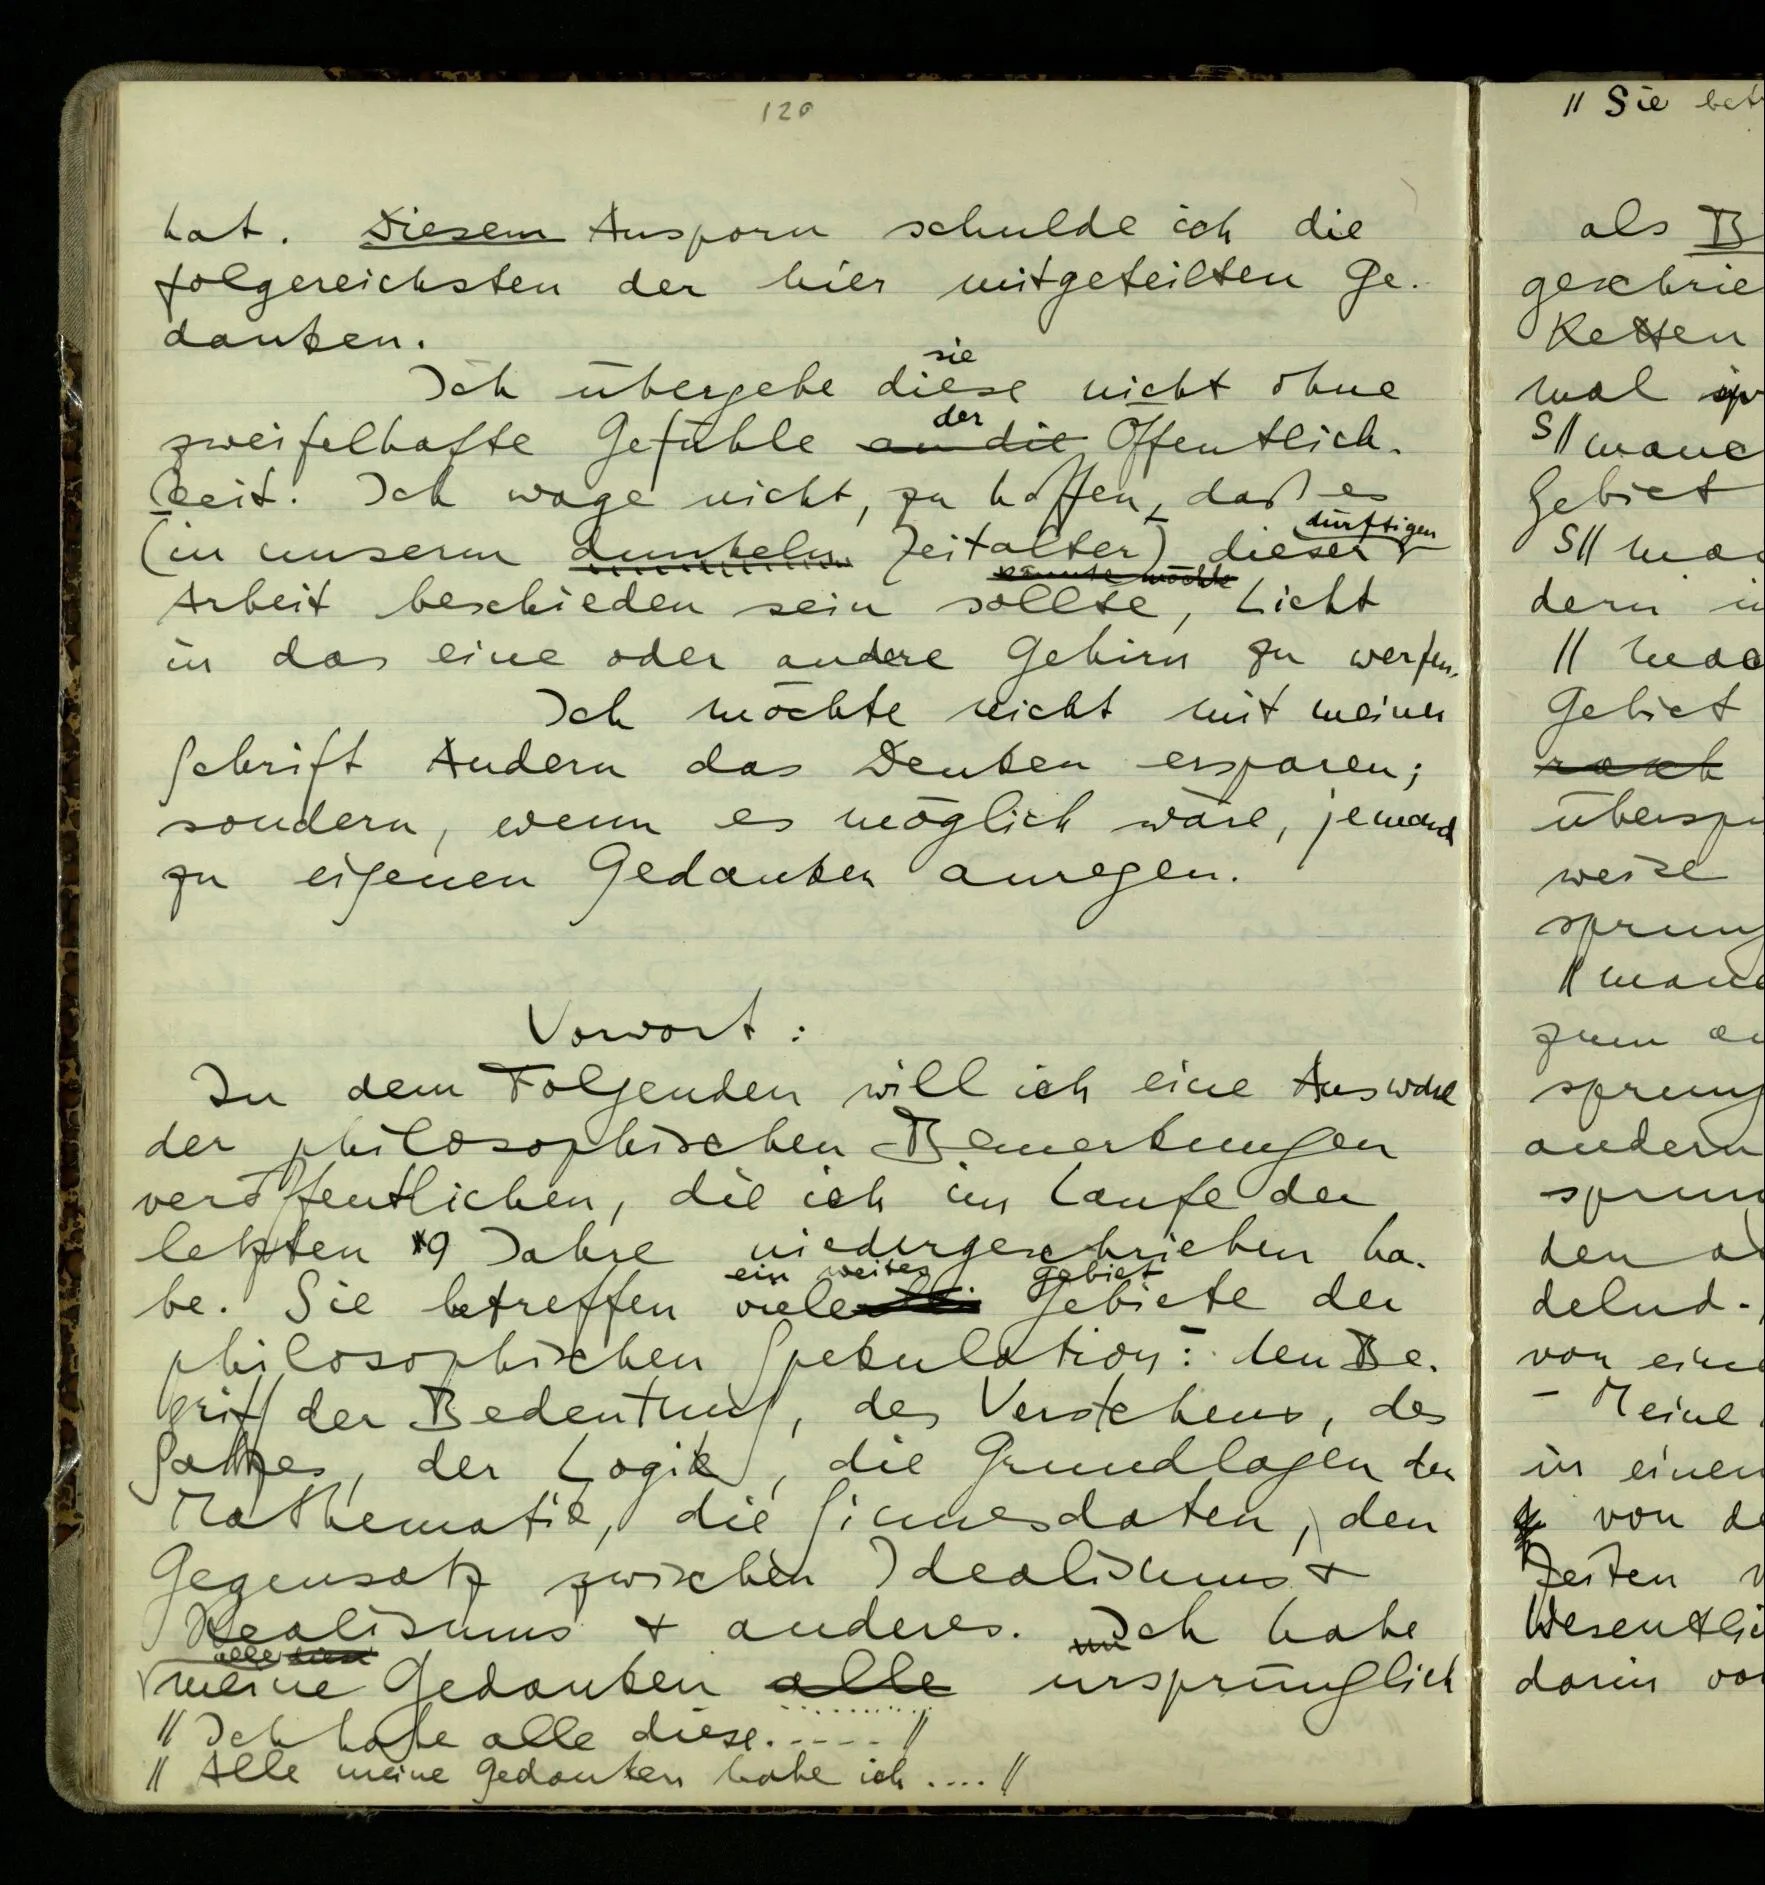 120
hat. Diesem Ansporn schulde ich die
folgereichsten der hier mitgeteilten Ge-
danken.
sie
Ich übergebe diese nicht ohne
der
zweifelhafte Gefühle an die Öffentlich-
keit. Ich wage nicht, zu hoffen, daß es
dürftigen
(in unserm dunkeln Zeitalter) dieser
könnte möchte
Arbeit beschieden sein sollte, Licht
in das eine oder andere Gehirn zu werfen.
Ich möchte nicht mit meiner
Schrift Andern das Denken ersparen;
sondern, wenn es möglich wäre, jemand
zu eigenen Gedanken anregen.
Vorwort:
In dem Folgenden will ich eine Auswahl
der philosophischen Bemerkungen
veröffentlichen, die ich im Laufe der
letzten 9 Jahre niedergeschrieben ha-
ein weites Gebiet
be. Sie betreffen viele Gebiete der
philosophischen Spekulation: den Be-
griff der Bedeutung, des Verstehens, des
Satzes, der Logik, die Grundlagen der
Mathematik, die Sinnesdaten, den
Gegensatz zwischen Idealismus +
Realismus + anderes. Ich habe
alle diese
meine Gedanken alle ursprünglich
// Ich habe alle diese.----//
// Alle meine Gedanken habe ich ....//
// Sie bet
als B
geschrie
Ketten
mal
S// manc
Gebiet
S// ma
dern
//
Gebiet
rasch
überspr
weise
sprung
// manc
zum an
sprung
andern
sprun
den
delnd.
von eine
– Meine
in einen
von de
Zeiten
Wesentli
darin vo